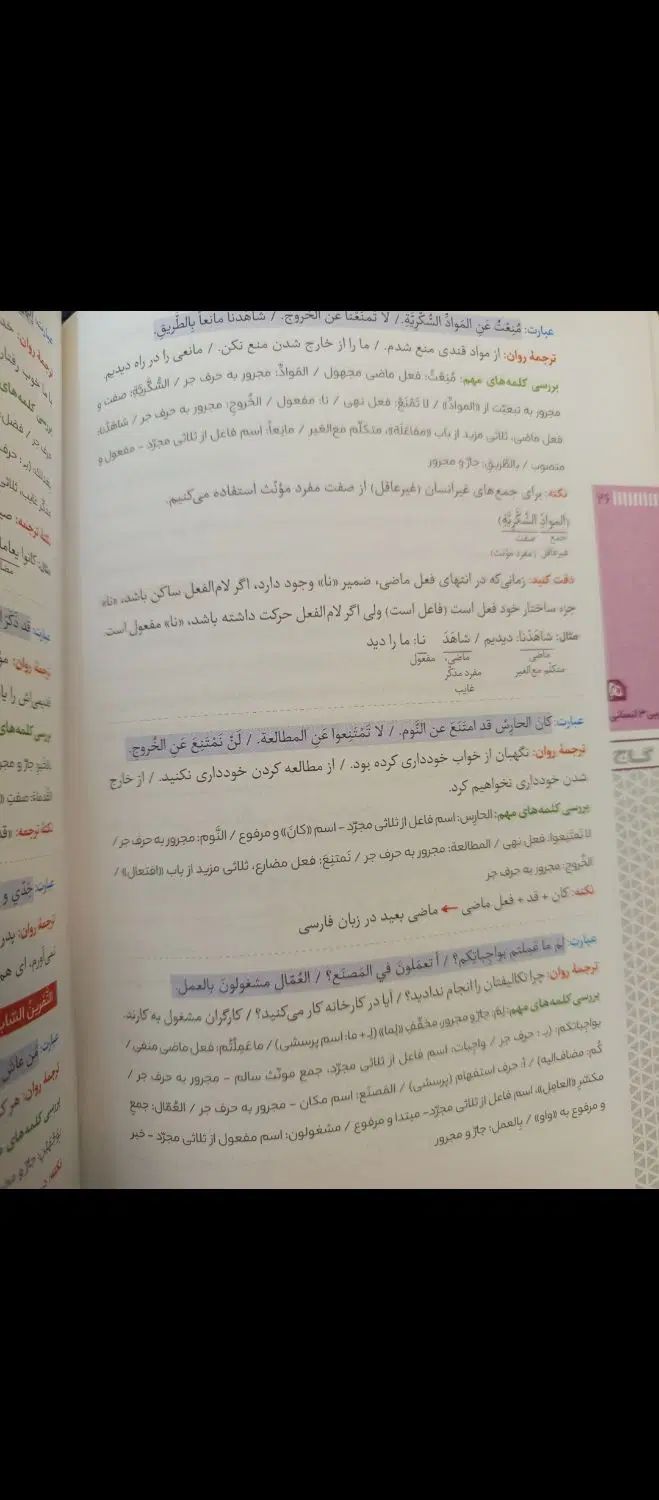 عبارت: مُنِعْتُ عَنِ المَوادِّ السُّكَّرِيَّةِ. / لا تَمْنَعْنا عَنِ الخُروجِ. / شاهَدْنا مانعاً بِالطَّريقِ.
ترجمهٔ روان: از مواد قندی منع شدم. / ما را از خارج شدن منع نکن. / مانعی را در راه دیدیم.
بررسی کلمه‌های مهم: مُنِعْتُ: فعل ماضی مجهول / المَوادِّ: مجرور به حرف جر / السُّكَّرِيَّةِ: صفت و
مجرور به تبعیّت از «المَوادِّ» / لا تَمْنَعْ: فعل نهی / نا: مفعول / الخُروجِ: مجرور به حرف جر / شاهَدْنا:
فعل ماضی، ثلاثی مزید از باب «مُفاعَلَة»، متکلّم مع‌الغیر / مانِعاً: اسم فاعل از ثلاثی مجرّد – مفعول و
منصوب / بِالطَّريقِ: جارّ و مجرور
نکته: برای جمع‌های غیرانسان (غیرعاقل) از صفت مفرد مؤنّث استفاده می‌کنیم.
(المَوادِّ السُّكَّرِيَّةِ)
جمع صفت
غیرعاقل (مفرد مؤنث)
دقت کنید: زمانی‌که در انتهای فعل ماضی، ضمیر «نا» وجود دارد، اگر لام‌الفعل ساکن باشد، «نا»
جزء ساختار خود فعل است (فاعل است) ولی اگر لام‌الفعل حرکت داشته باشد، «نا» مفعول است.
مثال: شاهَدْنا: دیدیم / شاهَدَ نا: ما را دید
ماضی ماضی، مفعول
متکلّم مع‌الغیر مفرد مذکّر
غایب
عبارت: كانَ الحارِسُ قد امتَنَعَ عن النَّوم. / لا تَمْتَنِعوا عَنِ المطالعة. / لَنْ نَمْتَنِعَ عَنِ الخُروج.
ترجمهٔ روان: نگهبان از خواب خودداری کرده بود. / از مطالعه کردن خودداری نکنید. / از خارج
شدن خودداری نخواهیم کرد.
بررسی کلمه‌های مهم: الحارِس: اسم فاعل از ثلاثی مجرّد – اسم «كانَ» و مرفوع / النَّوم: مجرور به حرف جر /
لا تَمتَنِعوا: فعل نهی / المطالعة: مجرور به حرف جر / نَمتنِعَ: فعل مضارع، ثلاثی مزید از باب «افتعال» /
الخُروج: مجرور به حرف جر
نکته: کان + قد + فعل ماضی ← ماضی بعید در زبان فارسی
عبارت: لِمَ ما عَمِلتم بِواجِباتِكم؟ / أ تعمَلونَ في المَصنَع؟ / العُمّال مشغولونَ بالعمل.
ترجمهٔ روان: چرا تکالیفتان را انجام ندادید؟ / آیا در کارخانه کار می‌کنید؟ / کارگران مشغول به کارند.
بررسی کلمه‌های مهم: لِمَ: جارّ و مجرور، مخفّفِ «لِما» (لِـ + ما: اسم پرسشی) / ما عَمِلْتُم: فعل ماضی منفی /
بواجباتکم: (بِـ : حرف جر / واجبات: اسم فاعل از ثلاثی مجرّد، جمع مونّث سالم – مجرور به حرف جر /
کُم: مضاف‌الیه) / أ: حرف استفهام (پرسشی) / المَصنَع: اسم مکان – مجرور به حرف جر / العُمّال: جمعِ
مکسّرِ «العامِل»، اسم فاعل از ثلاثی مجرّد – مبتدا و مرفوع / مشغولون: اسم مفعول از ثلاثی مجرّد – خبر
و مرفوع به «واو» / بِالعمل: جارّ و مجرور
۲۶
گــاج